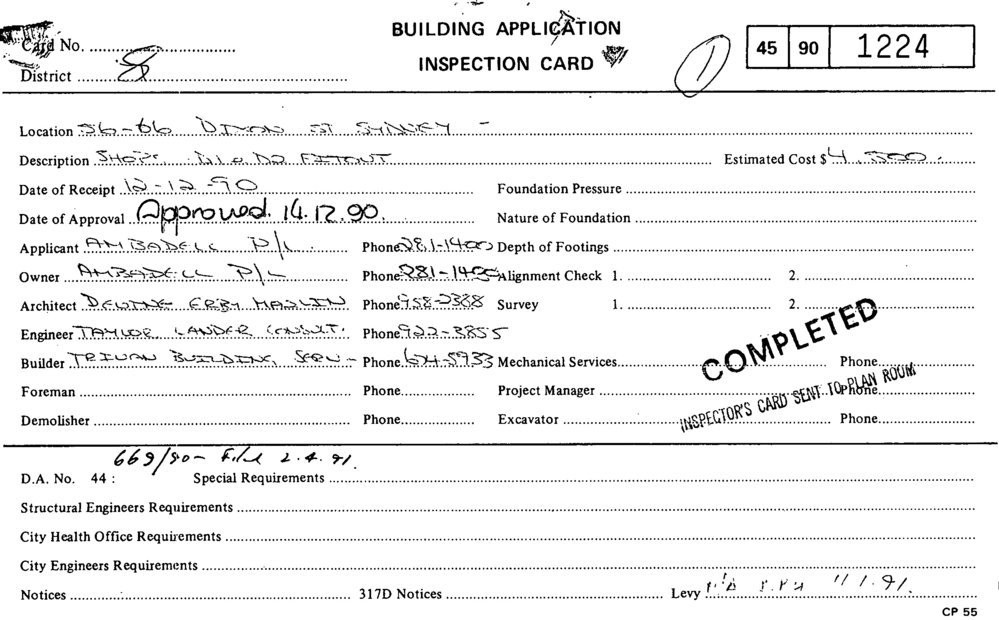 BUILDING APPLICATION
Card No.
INSPECTION CARD
1
45 90 1224
District 8
Location 56-66 DIXON ST SYDNEY -
Description SHOPS D1 & D2 FITOUT Estimated Cost $ 4,500.
Date of Receipt 12-12-90 Foundation Pressure
Date of Approval Approved. 14.12.90. Nature of Foundation
Applicant AMBADELL P/L Phone 281-1400 Depth of Footings
Owner AMBADELL P/L Phone 281-1400 Alignment Check 1. 2.
Architect DEVINE ERBY MAZLIN Phone 958-2388 Survey 1. 2.
Engineer TAYLOR LANDER CONSULT. Phone 922-3855
Builder BUILDING SERV - Phone 674-5933 Mechanical Services Phone
COMPLETED
Foreman Phone Project Manager Phone
INSPECTOR'S CARD SENT TO PLAN ROOM
Demolisher Phone Excavator Phone
669/90- File 2.4.91.
D.A. No. 44 : Special Requirements
Structural Engineers Requirements
City Health Office Requirements
City Engineers Requirements
Notices 317D Notices Levy 11.1.91.
CP 55